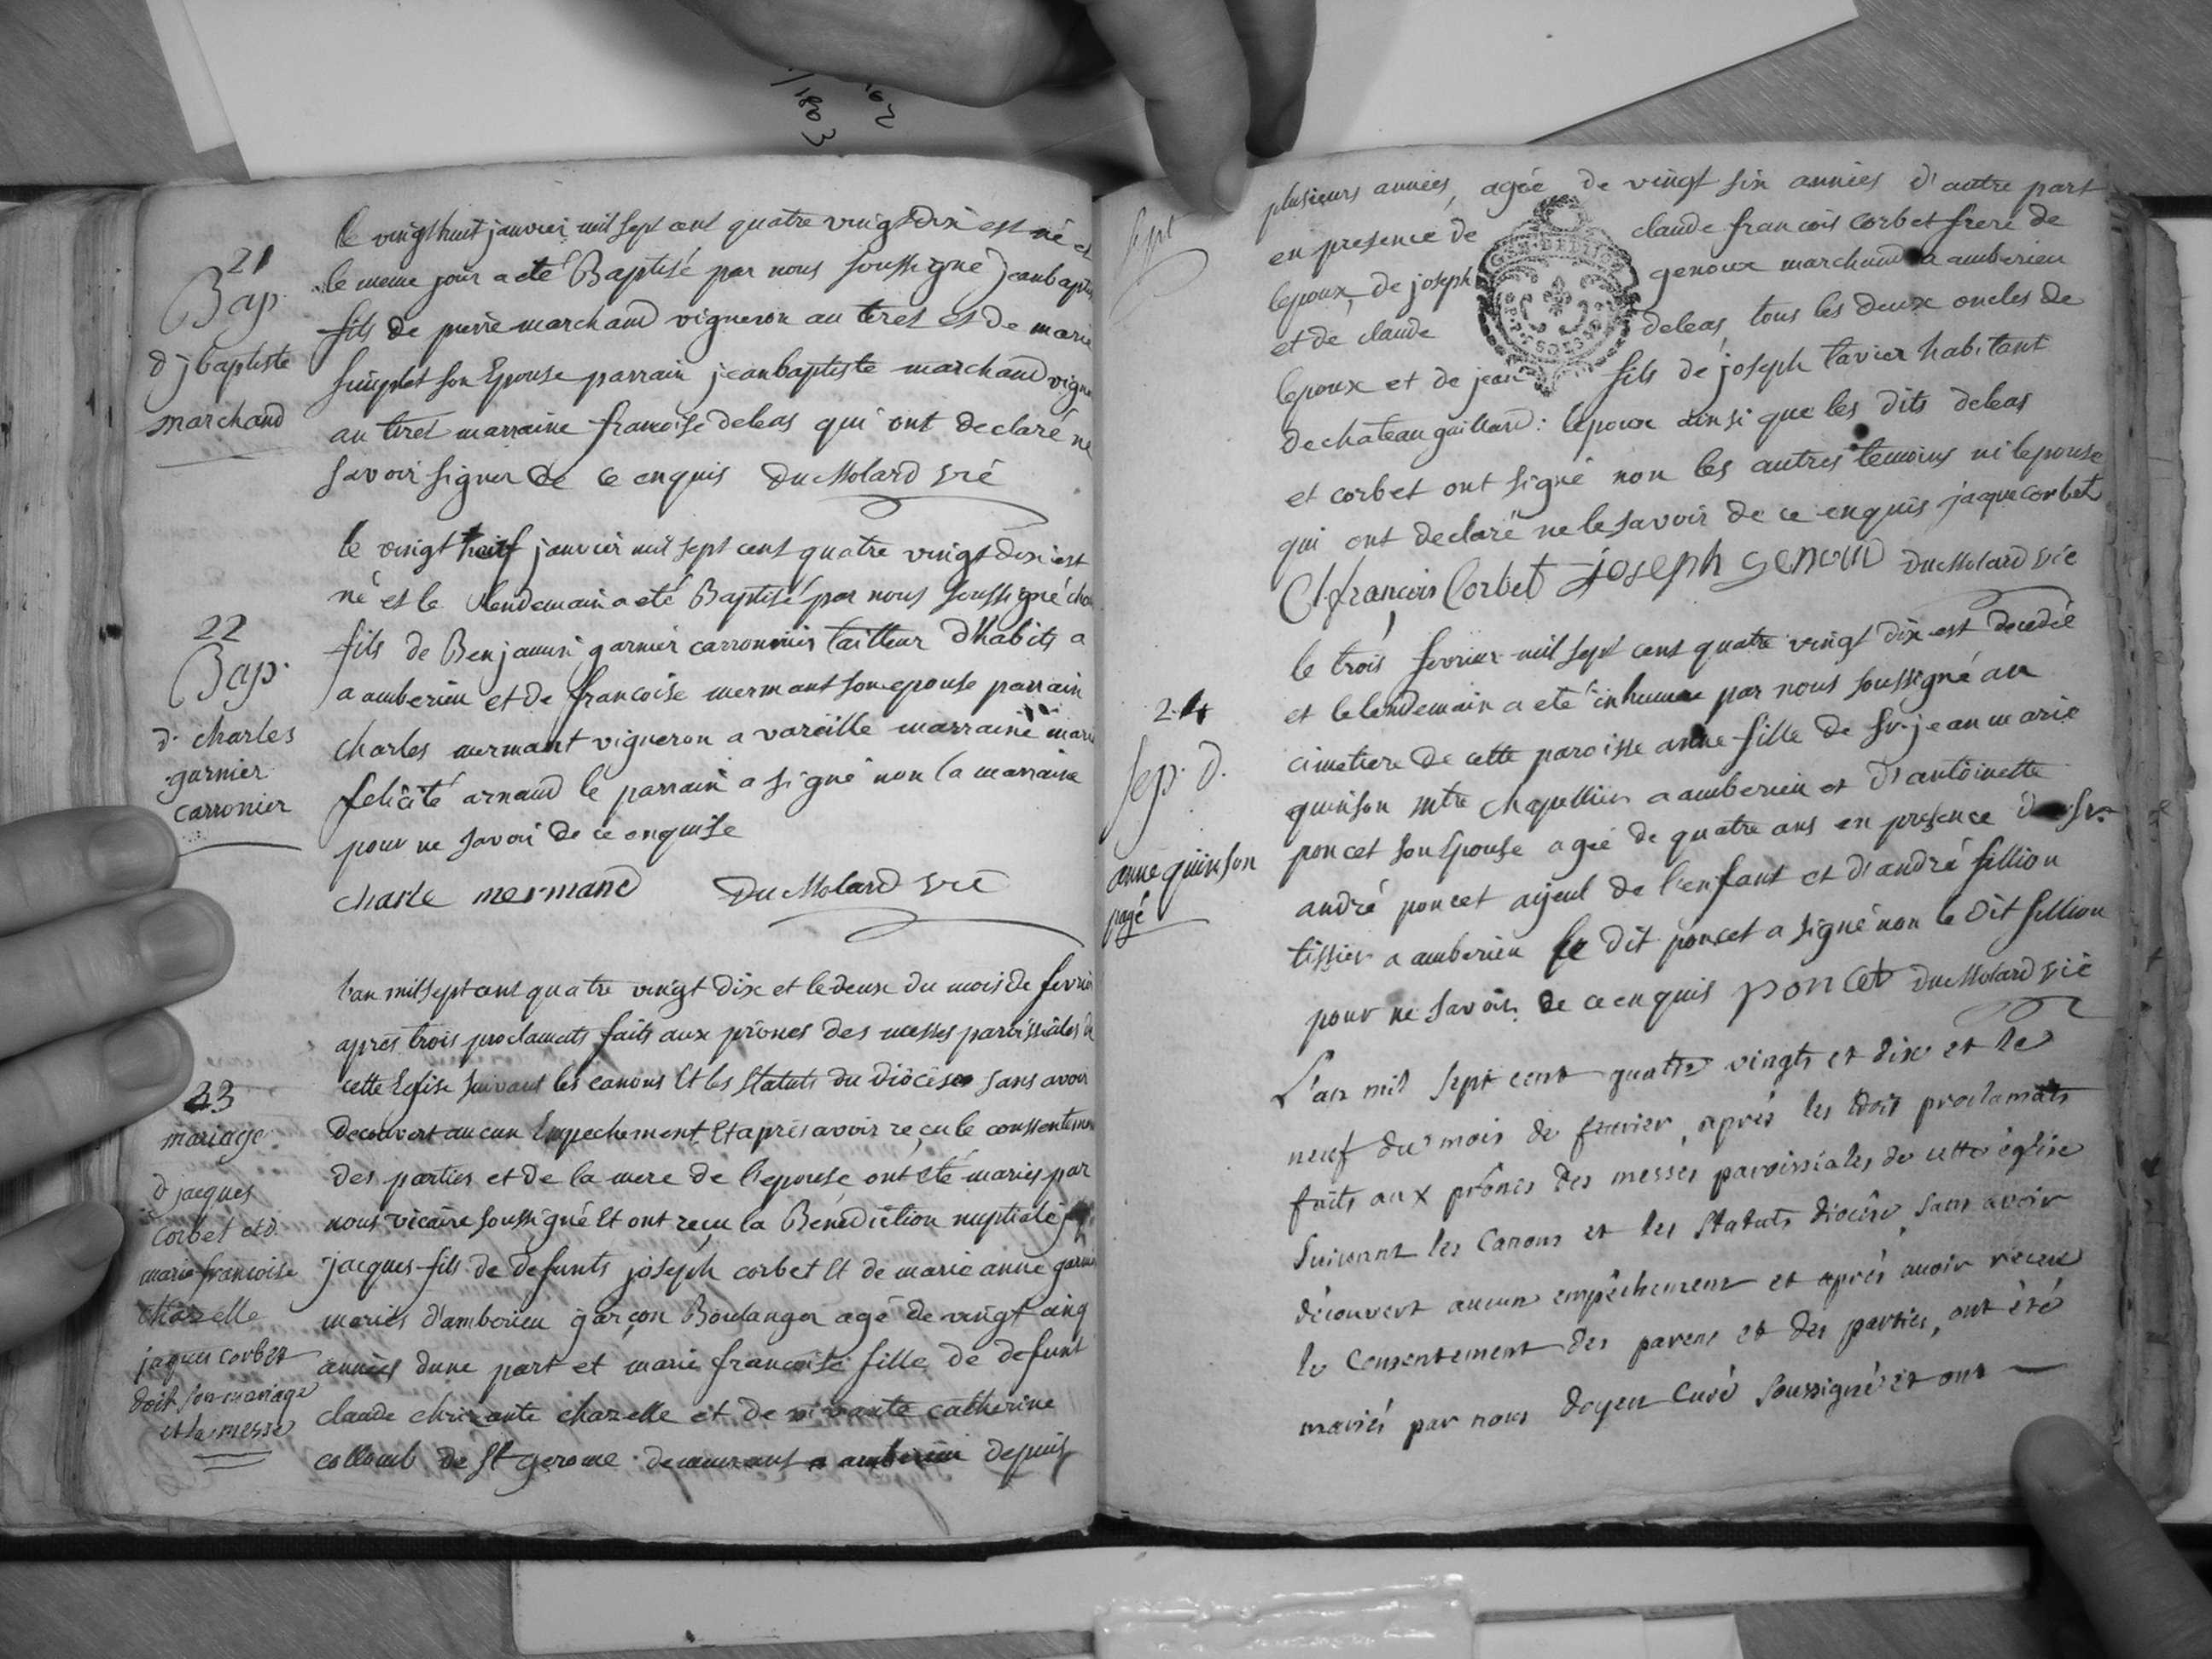 21
Bap
d jbaptiste
marchand
le vingt huit janvier mil sept cent quatre vingt dix est né et
le meme jour a eté Baptisé par nous soussigné jeanbaptis
fils de pierre marchand vigneron au tiret et de marie
son Epouse parrain jeanbaptiste marchand vigne
au tiret marraine francoise debeas qui ont declaré ne
savoir signer de ce enquis DuMolard vic
22
Bap.
d. charles
garnier
carronier
le vingt janvier mil sept cent quatre vingt dix est
né et le lendemain a eté Baptisé par nous soussigné
fils de Benjamin garnier carronnier tailleur d'habits a
a amberieu et de francoise mermant son epouse parrain
charles mermant vigneron a vareille marraine marie
felicité arnaud le parrain a signé non la marraine
pour ne savoir de ce enquise
charle mermand DuMolard vic
23
mariage
d jacques
Corbet et d.
marie francoise
chazelle
jaques corbet
doit son mariage
et la messe
l'an mil sept cent quatre vingt dix et le deux du mois de fevrier
après trois proclamats faits aux prônes des messes paroissiales de
cette Eglise suivant les canons Et les statuts du diocèse sans avoir
decouvert aucun Empechement Et après avoir reçu le conssentement
des parties et de la mere de l'epouse ont eté mariés par
nous vicaire soussigné Et ont reçu la Bénédiction nuptiale
jacques fils de defunts joseph corbet Et de marie anne garnier
mariés d'amberieu garçon Boulanger agé de vingt cinq
années d'une part et marie francoise fille de defunt
claude chazelle et de vivante catherine
collomb de St gerome demeurant a amberieu depuis
sept
plusieurs années, agée de vingt six années d'autre part
en presence de claude francois corbet frere de
lepoux, de joseph genoux marchand a amberieu
et de claude debeas, tous les deux oncles de
lepoux et de jean fils de joseph tavier habitant
de chateau gaillard: lepoux ainsi que les dits debeas
et corbet ont signé non les autres temoins ni lepouse
qui ont declaré ne le savoir de ce enquis jaque corbet
Cl francois Corbet joseph genoud DuMolard vic
24
sep. d.
anne quinson
payé
le trois fevrier mil sept cent quatre vingt dix est decedée
et le lendemain a eté inhumée par nous soussigné au
cimetiere de cette paroisse anne fille de Sr. jean marie
quinson mtre chapellier a amberieu et d'antoinette
poncet son Epouse agée de quatre ans en presence de Sr.
andré poncet ayeul de l'enfant et d'andré sillion
tissier a amberieu le dit poncet a signé non le dit sillion
pour ne savoir de ce enquis poncet DuMolard vic
L'an mil sept cent quatre vingts et dix et le
neuf du mois de fevrier, après les trois proclamats
faits aux prônes des messes paroissiales de cette église
suivant les Canons et les Statuts diocèse, sans avoir
découvert aucun empêchement et après avoir receu
le Consentement des parens et des parties, ont été
mariés par nous doyen Curé soussigné et ont